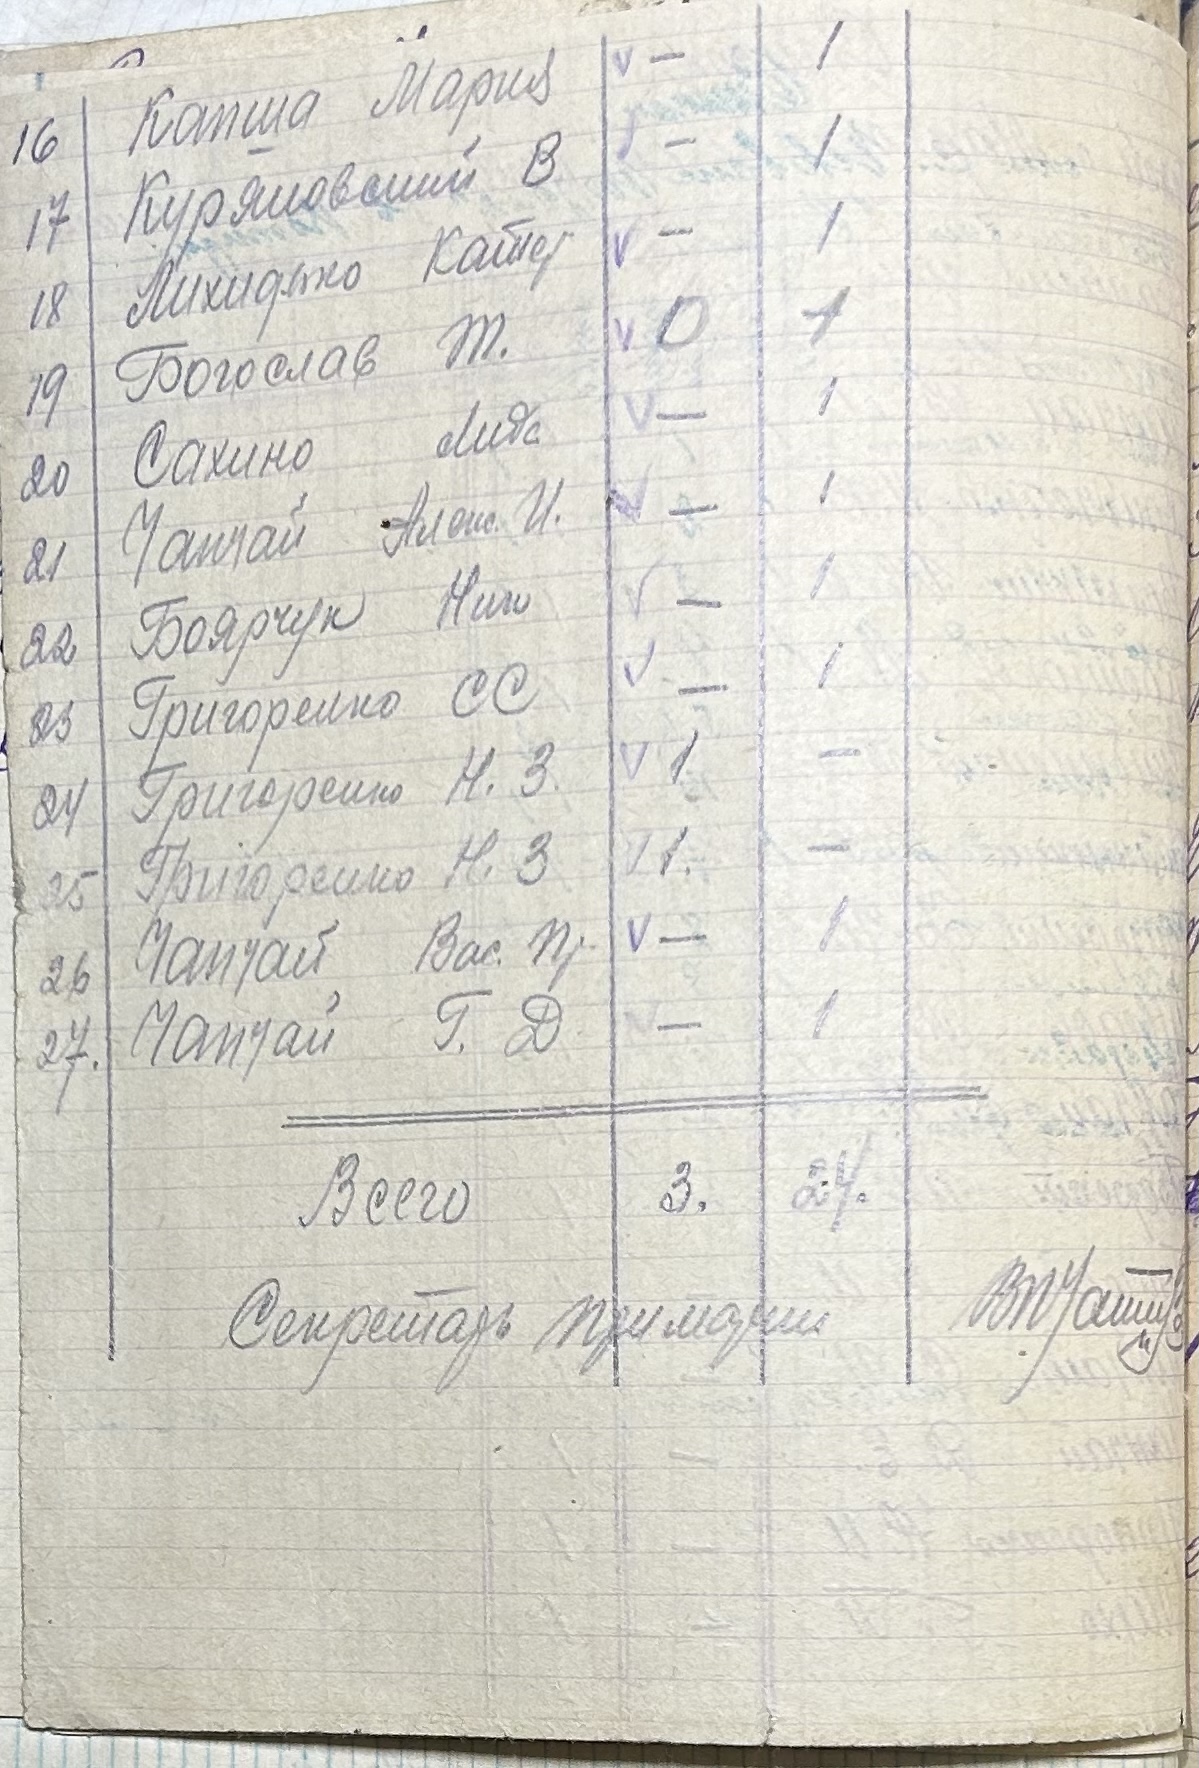 16 Капша Мария V — 1
17 Куряновский В V — 1
18 Лихидько Катер V — 1
19 Богослав Т. V 0 1
20 Сахино Лида V — 1
21 Чапчай Алекс. И. V — 1
22 Боярчук Нин V — 1
23 Григоренко СС V — 1
24 Григоренко Н. З. V 1 —
25 Григоренко Н. З V 1. —
26 Чапчай Вас. Пр V — 1
27. Чапчай Г. Д V — 1
Всего 3. 24.
Секретарь примарии